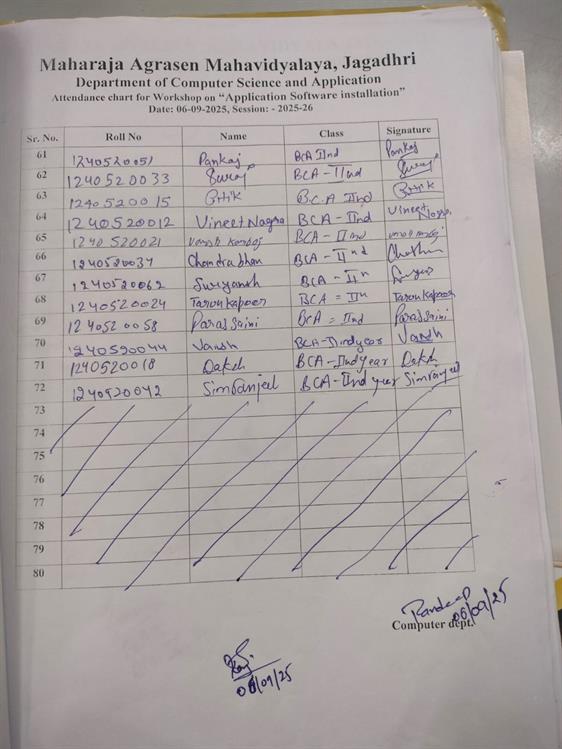 Maharaja Agrasen Mahavidyalaya, Jagadhri
Department of Computer Science and Application
Attendance chart for Workshop on “Application Software installation”
Date: 06-09-2025, Session: - 2025-26
Sr. No. Roll No Name Class Signature
61 1240520051 Pankaj BCA IInd Pankaj
62 1240520033 Suraj BCA - IInd Suraj
63 1240520015 Ritik B.C.A IInd Ritik
64 1240520012 Vineet Nagra BCA - IInd Vineet Nagra
65 1240520021 Vansh Kamboj BCA - IInd
66 1240520037 Chandrabhan BCA - IInd
67 1240520062 BCA - IIn
68 1240520024 Tarun Kapoor BCA = IIn Tarun Kapoor
69 1240520058 Paras Saini BCA = IInd Paras Saini
70 1240520044 Vansh BCA - IInd year Vansh
71 1240520018 Daksh BCA - IInd year Daksh
72 1240520042 Simranjeet BCA - IInd year Simranjeet
73
74
75
76
77
78
79
80
06/09/25
Computer dept.
06/09/25